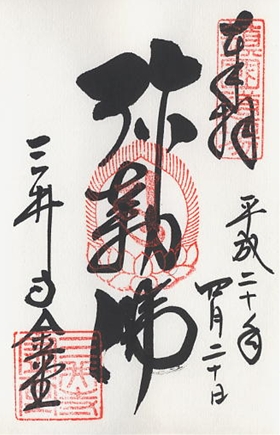 奉拝
平成二十年
四月二十日
弥勒佛
三井寺金堂